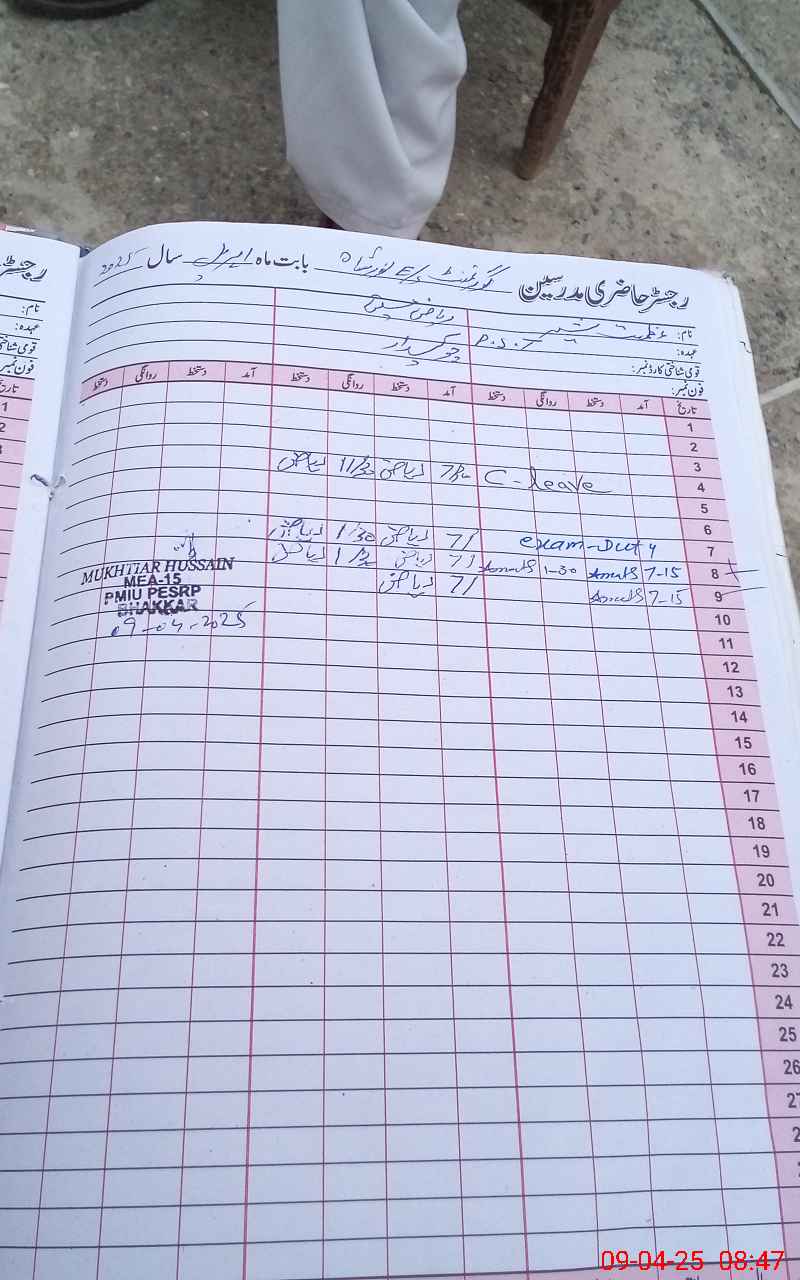 رجسٹر حاضری مدرسین گورنمنٹ E/S نور شاہ بابت ماہ اپریل سال 2025
نام: عظمت شبیر ریاض حسین
عہدہ: P.S.T چوکیدار
قومی شناختی کارڈ نمبر:
فون نمبر:
تاریخ آمد دستخط روانگی دستخط آمد دستخط روانگی دستخط آمد دستخط روانگی دستخط
1
2
3
4 C-leave ریاض ریاض
5
6
7 exam-Duty 7/ ریاض 1/30 ریاض
8 7-15 1-30 7/ ریاض ریاض
9 7-15 7/ ریاض
10
11
12
13
14
15
16
17
18
19
20
21
22
23
24
25
26
MUKHTIAR HUSSAIN
MEA-15
PMIU PESRP
BHAKKAR
09-04-2025
رجسٹر
نام:
عہدہ:
قومی شناختی
فون نمبر
تاریخ
1
2
09-04-25 08:47